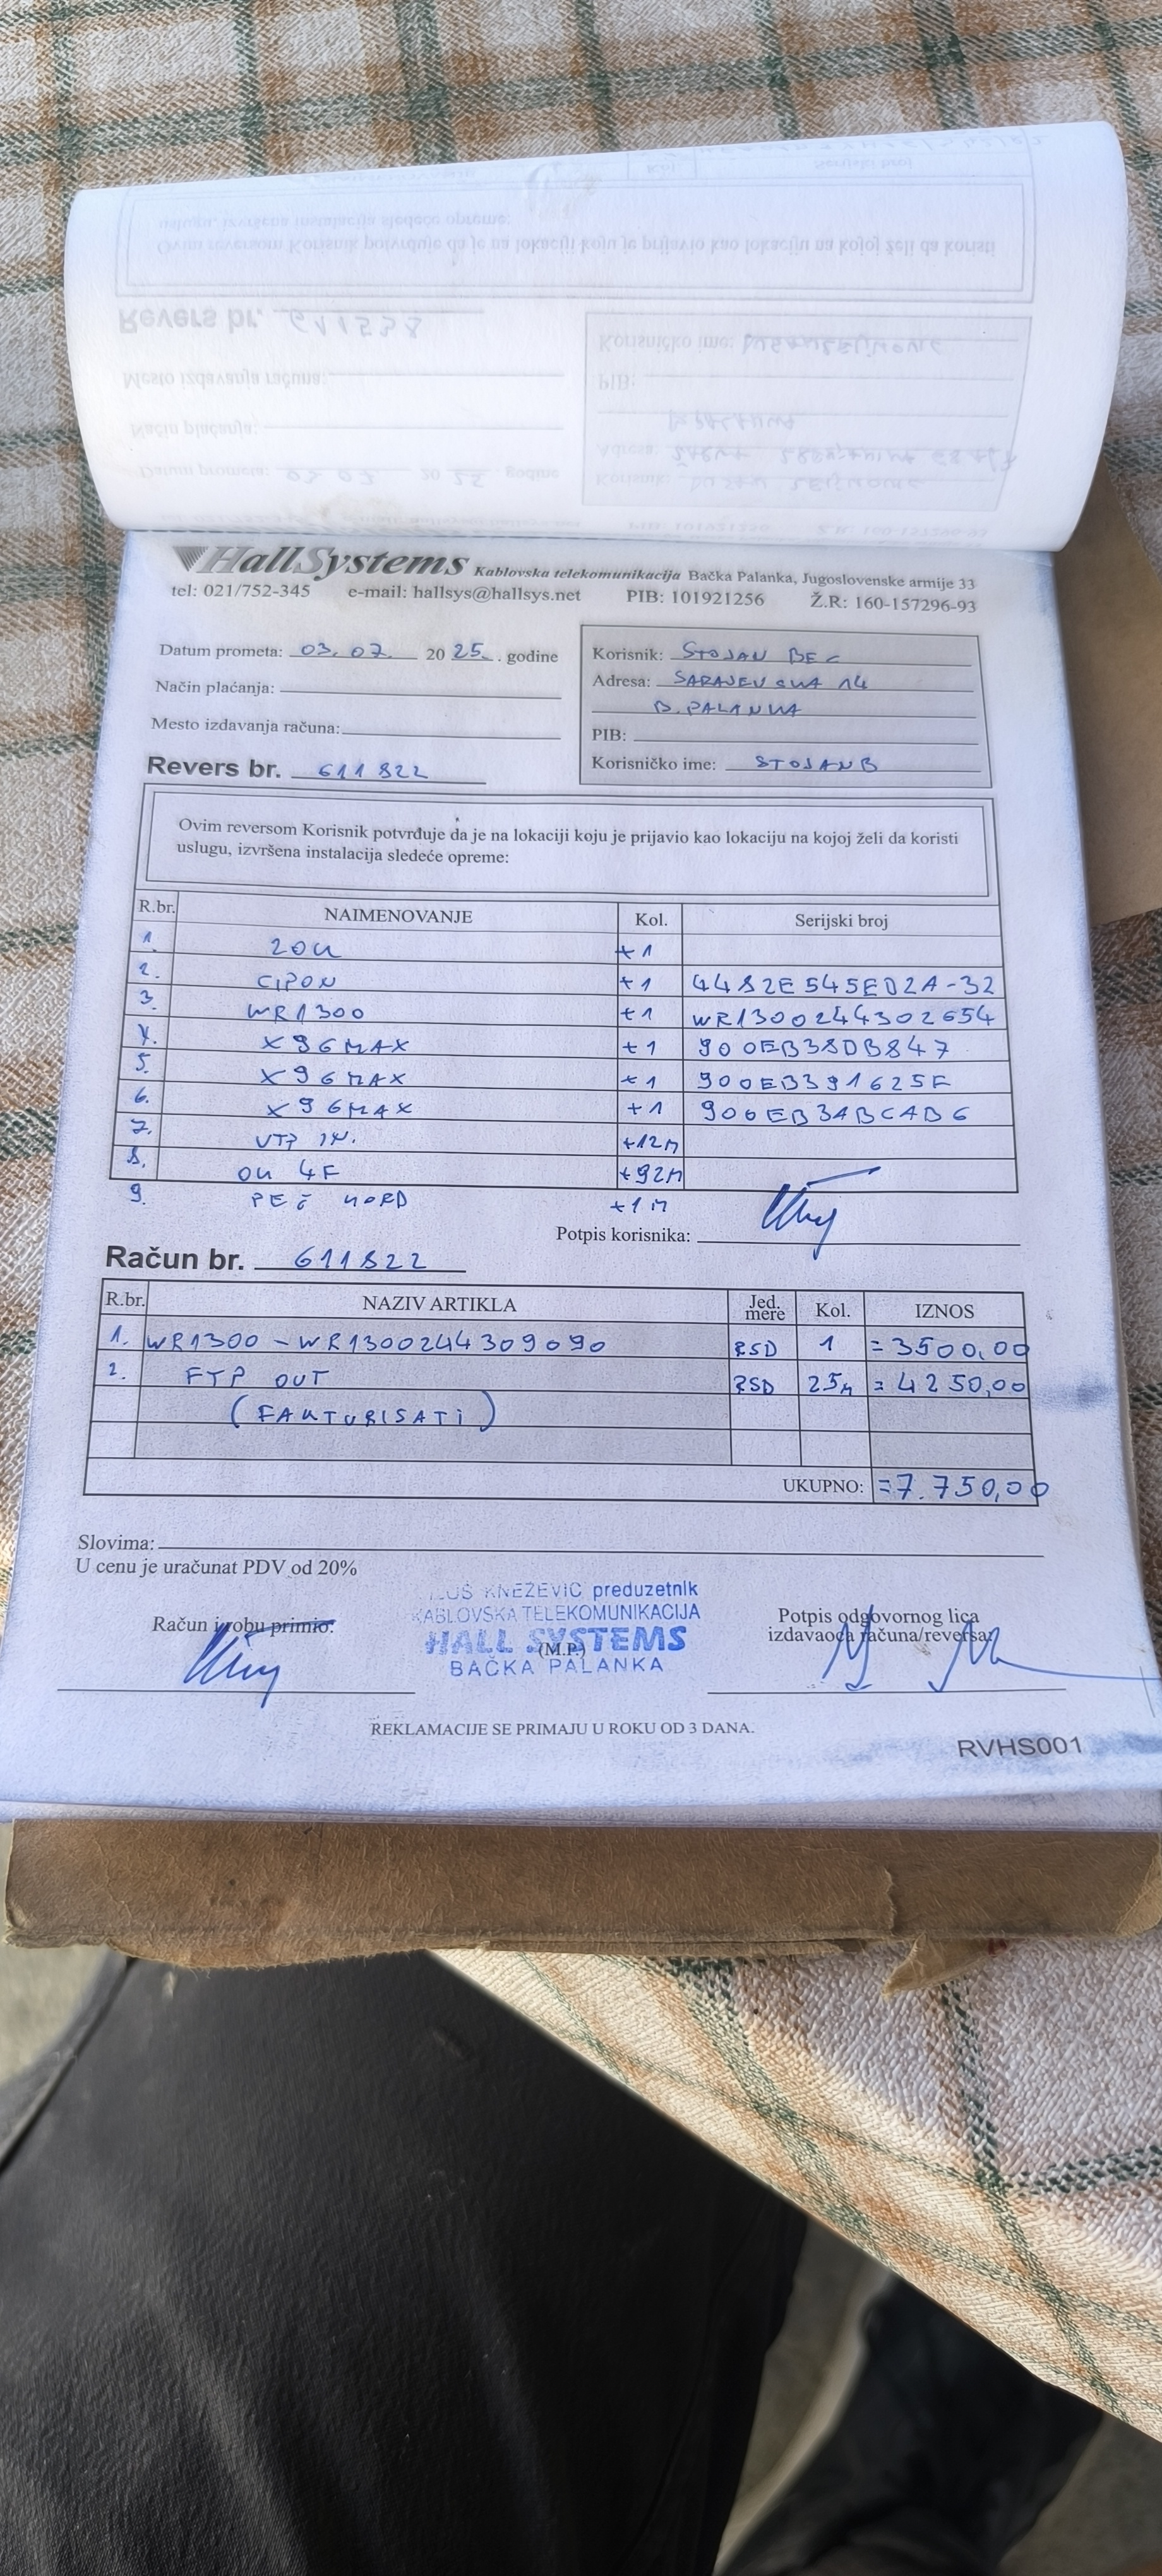 HallSystems Kablovska telekomunikacija Bačka Palanka, Jugoslovenske armije 33
tel: 021/752-345 e-mail: hallsys@hallsys.net PIB: 101921256 Ž.R: 160-157296-93
Datum prometa: 03. 07. 20 25. . godine
Način plaćanja:
Mesto izdavanja računa:
Revers br. 611822
Korisnik: STOJAN BEC
Adresa: SARAJEVSKA 14
B. PALANKA
PIB:
Korisničko ime: STOJANB
Ovim reversom Korisnik potvrđuje da je na lokaciji koju je prijavio kao lokaciju na kojoj želi da koristi
uslugu, izvršena instalacija sledeće opreme:
R.br. NAIMENOVANJE Kol. Serijski broj
1. ZOK +1
2. CIPON +1 4482E545ED2A-32
3. WR1300 +1 WR1300244302654
4. X96MAX +1 900EB38DB847
5. X96MAX +1 900EB391625F
6. X96MAX +1 900EB3ABCAB6
7. UTP IN. +12M
8. OK 4F +92M
9. PEČ KORD +1M
Potpis korisnika:
Račun br. 611822
R.br. NAZIV ARTIKLA Jed. mere Kol. IZNOS
1. WR1300 - WR1300244309090 RSD 1 =3500,00
2. FTP OUT RSD 25M =4250,00
(FAKTURISATI)
UKUPNO: =7.750,00
Slovima:
U cenu je uračunat PDV od 20%
KNEŽEVIĆ preduzetnik
KABLOVSKA TELEKOMUNIKACIJA
HALL SYSTEMS
(M.P.)
BAČKA PALANKA
Račun i robu primio:
Potpis odgovornog lica
izdavaoca računa/reversa:
REKLAMACIJE SE PRIMAJU U ROKU OD 3 DANA.
RVHS001